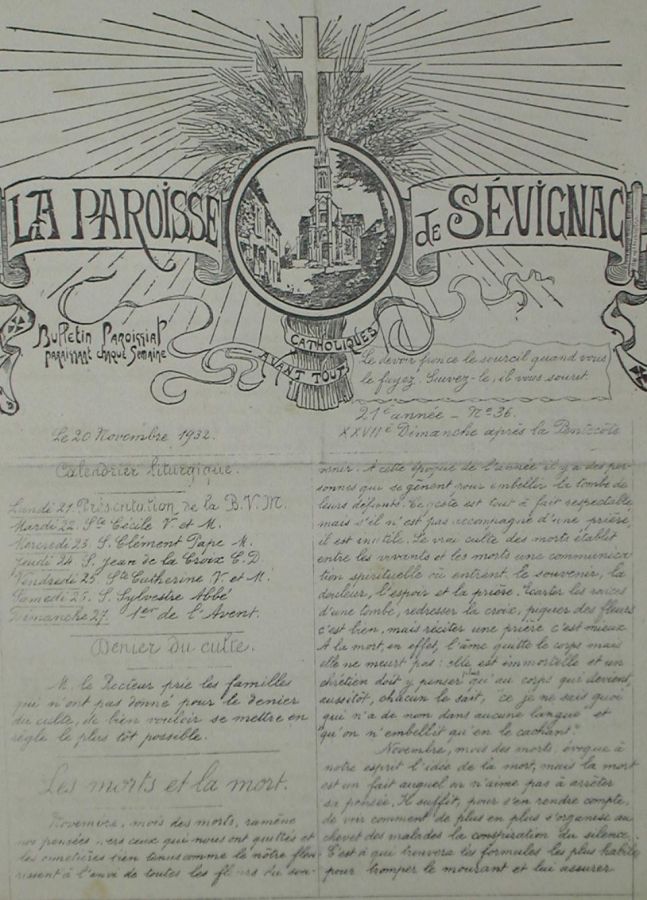 LA PAROISSE
de SÉVIGNAC
Bulletin Paroissial
paraissant chaque Semaine
CATHOLIQUES
AVANT TOUT
Le devoir fronce le sourcil quand vous
le fuyez. Suivez-le, il vous sourit.
21e année - No 36.
Le 20 Novembre 1932.
XXVIIe Dimanche après la Pentecôte
Calendrier liturgique.
Lundi 21. Présentation de la B.V.M.
Mardi 22. Ste Cécile V et M.
Mercredi 23. S. Clément Pape M.
Jeudi 24. S. Jean de la Croix C.D
Vendredi 25. Ste Catherine V. et M.
Samedi 26. S. Sylvestre Abbé
Dimanche 27. 1er de l'Avent.
Denier du culte.
M. le Recteur prie les familles
qui n'ont pas donné pour le denier
du culte, de bien vouloir se mettre en
règle le plus tôt possible.
Les morts et la mort.
Novembre, mois des morts, ramène
nos pensées vers ceux qui nous ont quittés et
les cimetières bien tenus comme le nôtre fleu-
rissent à l'envi de toutes les fleurs du sou-
venir. A cette époque de l'année il y a des per-
sonnes qui se gênent pour embellir la tombe de
leurs défunts. Ce geste est tout à fait respectable
mais s'il n'est pas accompagné d'une prière
il est inutile. Le vrai culte des morts établit
entre les vivants et les morts une communica
tion spirituelle où entrent le souvenir, la
douleur, l'espoir et la prière. Ecarter les
d'une tombe, redresser la croix, piquer des fleurs
c'est bien, mais réciter une prière c'est mieux.
A la mort, en effet, l'âme quitte le corps mais
elle ne meurt pas: elle est immortelle et un
chrétien doit y penser qu'au corps qui devient
aussitôt, chacun le sait, "ce je ne sais quoi
qui n'a de nom dans aucune langue" et
"qu'on n'embellit qu'en le cachant".
Novembre, mois des morts, évoque à
notre esprit l'idée de la mort, mais la mort
est un fait auquel on n'aime pas à arrêter
sa pensée. Il suffit, pour s'en rendre compte,
de voir comment de plus en plus s'organise au
chevet des malades la conspiration du silence.
C'est à qui trouvera les formules les plus habiles
pour tromper le mourant et lui assurer